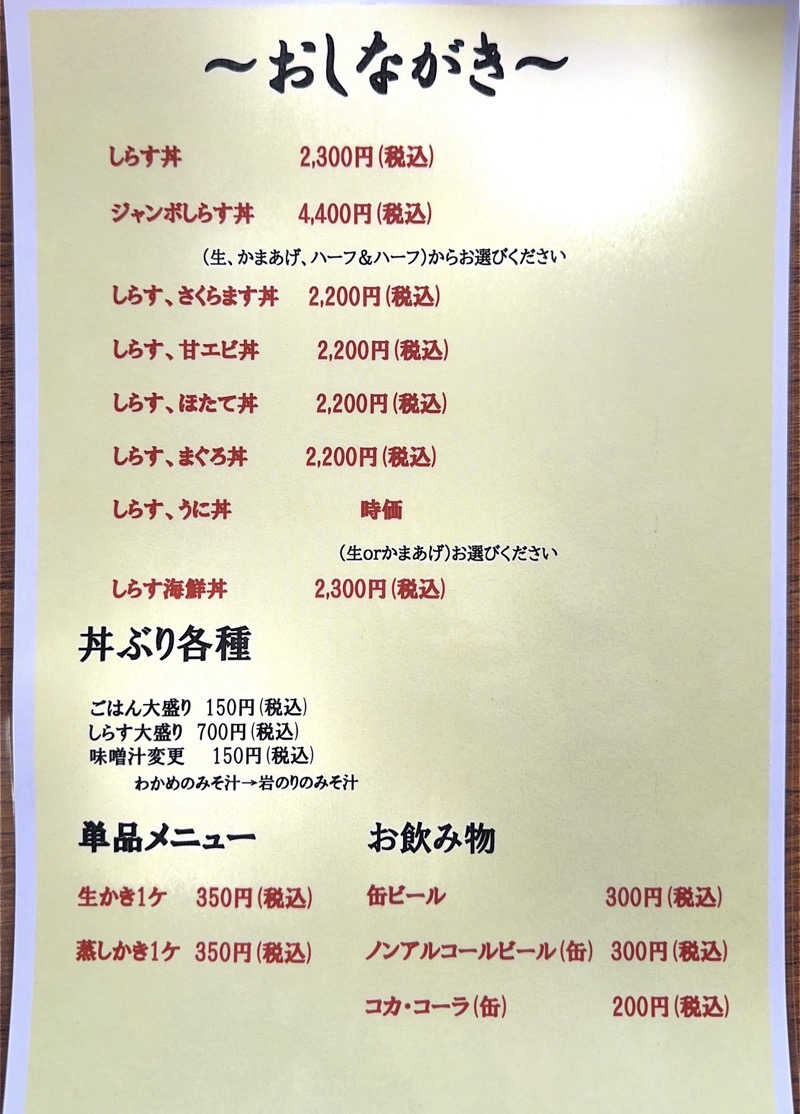 ～おしながき～
しらす丼 2,300円(税込)
ジャンボしらす丼 4,400円(税込)
(生、かまあげ、ハーフ&ハーフ)からお選びください
しらす、さくらます丼 2,200円(税込)
しらす、甘エビ丼 2,200円(税込)
しらす、ほたて丼 2,200円(税込)
しらす、まぐろ丼 2,200円(税込)
しらす、うに丼 時価
(生orかまあげ)お選びください
しらす海鮮丼 2,300円(税込)
丼ぶり各種
ごはん大盛り 150円(税込)
しらす大盛り 700円(税込)
味噌汁変更 150円(税込)
わかめのみそ汁→岩のりのみそ汁
単品メニュー
生かき1ケ 350円(税込)
蒸しかき1ケ 350円(税込)
お飲み物
缶ビール 300円(税込)
ノンアルコールビール(缶) 300円(税込)
コカ・コーラ(缶) 200円(税込)